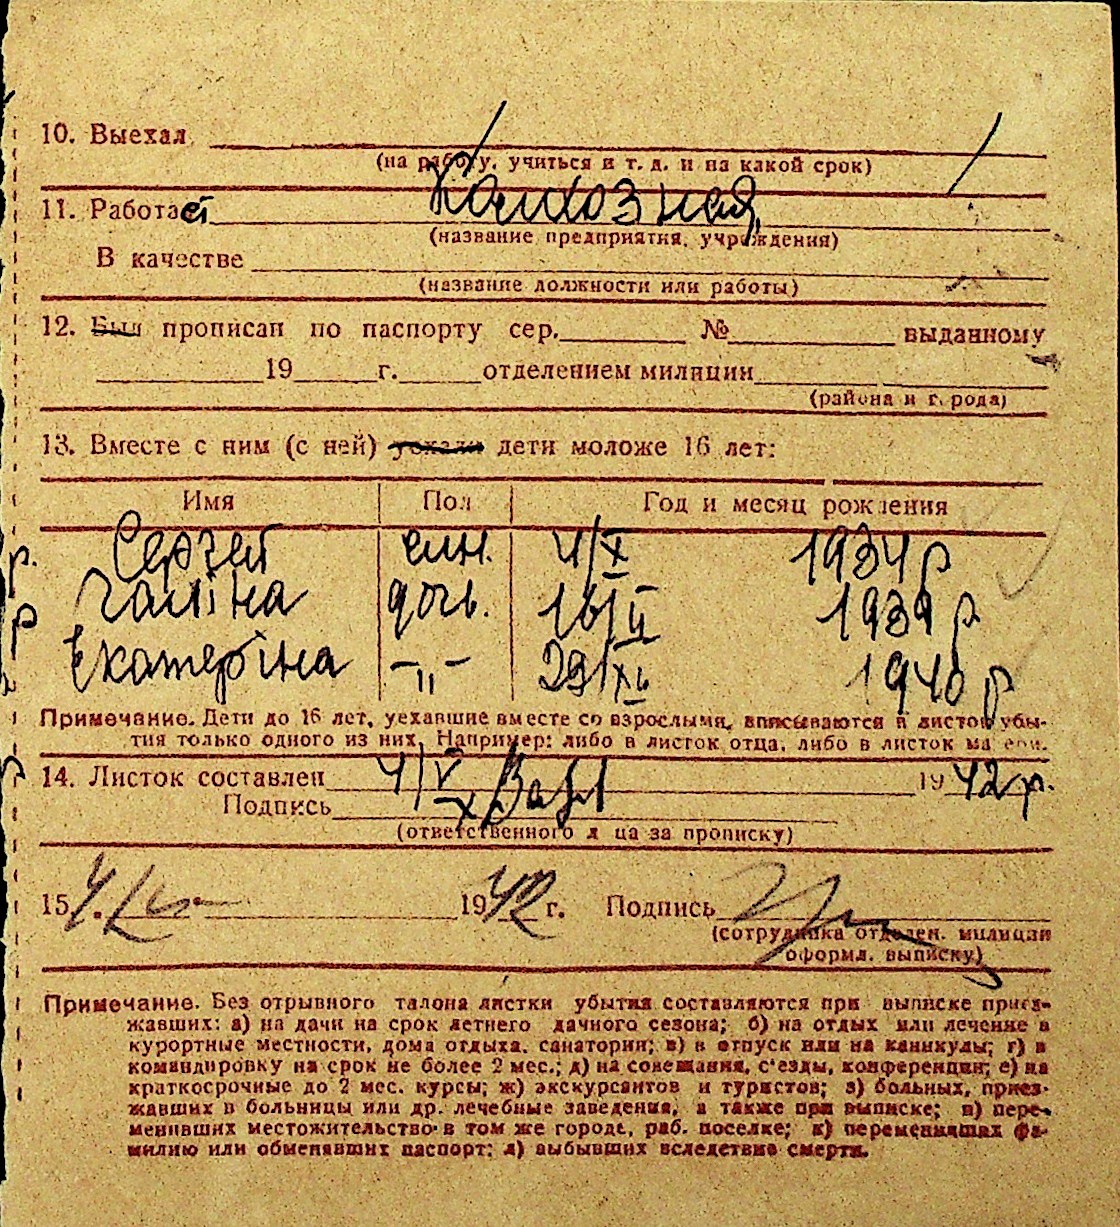 10. Выехал
(на работу, учиться и т. д. и на какой срок)
11. Работает Колхозная
(название предприятия, учреждения)
В качестве
(название должности или работы)
12. Был прописан по паспорту сер. № выданному
19 г. отделением милиции
(района и города)
13. Вместе с ним (с ней) уехали дети моложе 16 лет:
Имя Пол Год и месяц рождения
Сергей син. 4/X 1934 р
Галіна дочь. 16/II 1939 р.
Екатеріна -"- 29/XI 1940 р
Примечание. Дети до 16 лет, уехавшие вместе со взрослыми, вписываются в листок убы-
тия только одного из них. Например: либо в листок отца, либо в листок матери.
14. Листок составлен 4/V 1942 р.
Подпись
(ответственного лица за прописку)
15 1942 г. Подпись
(сотрудника отделен. милиции
оформл. выписку)
Примечание. Без отрывного талона листки убытия составляются при выписке приез-
жавших: а) на дачи на срок летнего дачного сезона; б) на отдых или лечение в
курортные местности, дома отдыха, санатории; в) в отпуск или на каникулы; г) в
командировку на срок не более 2 мес.; д) на совещания, с'езды, конференции; е) на
краткосрочные до 2 мес. курсы; ж) экскурсантов и туристов; з) больных, приез-
жавших в больницы или др. лечебные заведения, а также при выписке; и) пере-
менивших местожительство в том же городе, раб. поселке; к) переменивших фа-
милию или обменявших паспорт; л) выбывших вследствие смерти.